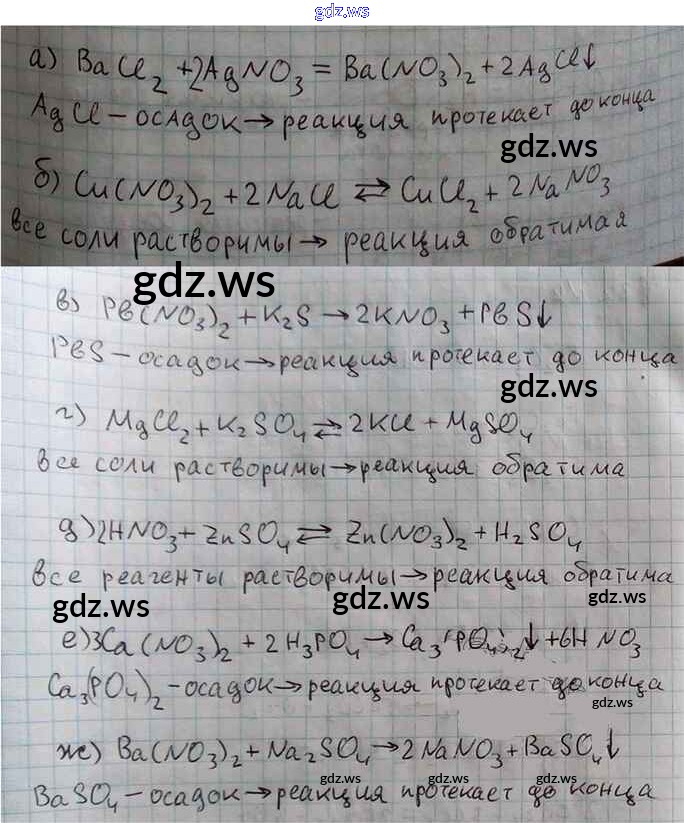 gdz.ws
а) BaCl₂ + 2AgNO₃ = Ba(NO₃)₂ + 2AgCl↓
AgCl – осадок → реакция протекает до конца
gdz.ws
б) Cu(NO₃)₂ + 2NaCl ⇄ CuCl₂ + 2NaNO₃
все соли растворимы → реакция обратимая
gdz.ws
в) Pb(NO₃)₂ + K₂S → 2KNO₃ + PbS↓
PbS – осадок → реакция протекает до конца
gdz.ws
г) MgCl₂ + K₂SO₄ ⇄ 2KCl + MgSO₄
все соли растворимы → реакция обратима
gdz.ws
д) 2HNO₃ + ZnSO₄ ⇄ Zn(NO₃)₂ + H₂SO₄
все реагенты растворимы → реакция обратима
gdz.ws gdz.ws gdz.ws
е) 3Ca(NO₃)₂ + 2H₃PO₄ → Ca₃(PO₄)₂↓ + 6HNO₃
Ca₃(PO₄)₂ – осадок → реакция протекает до конца
gdz.ws
ж) Ba(NO₃)₂ + Na₂SO₄ → 2NaNO₃ + BaSO₄↓
gdz.ws gdz.ws gdz.ws gdz.ws
BaSO₄ – осадок → реакция протекает до конца